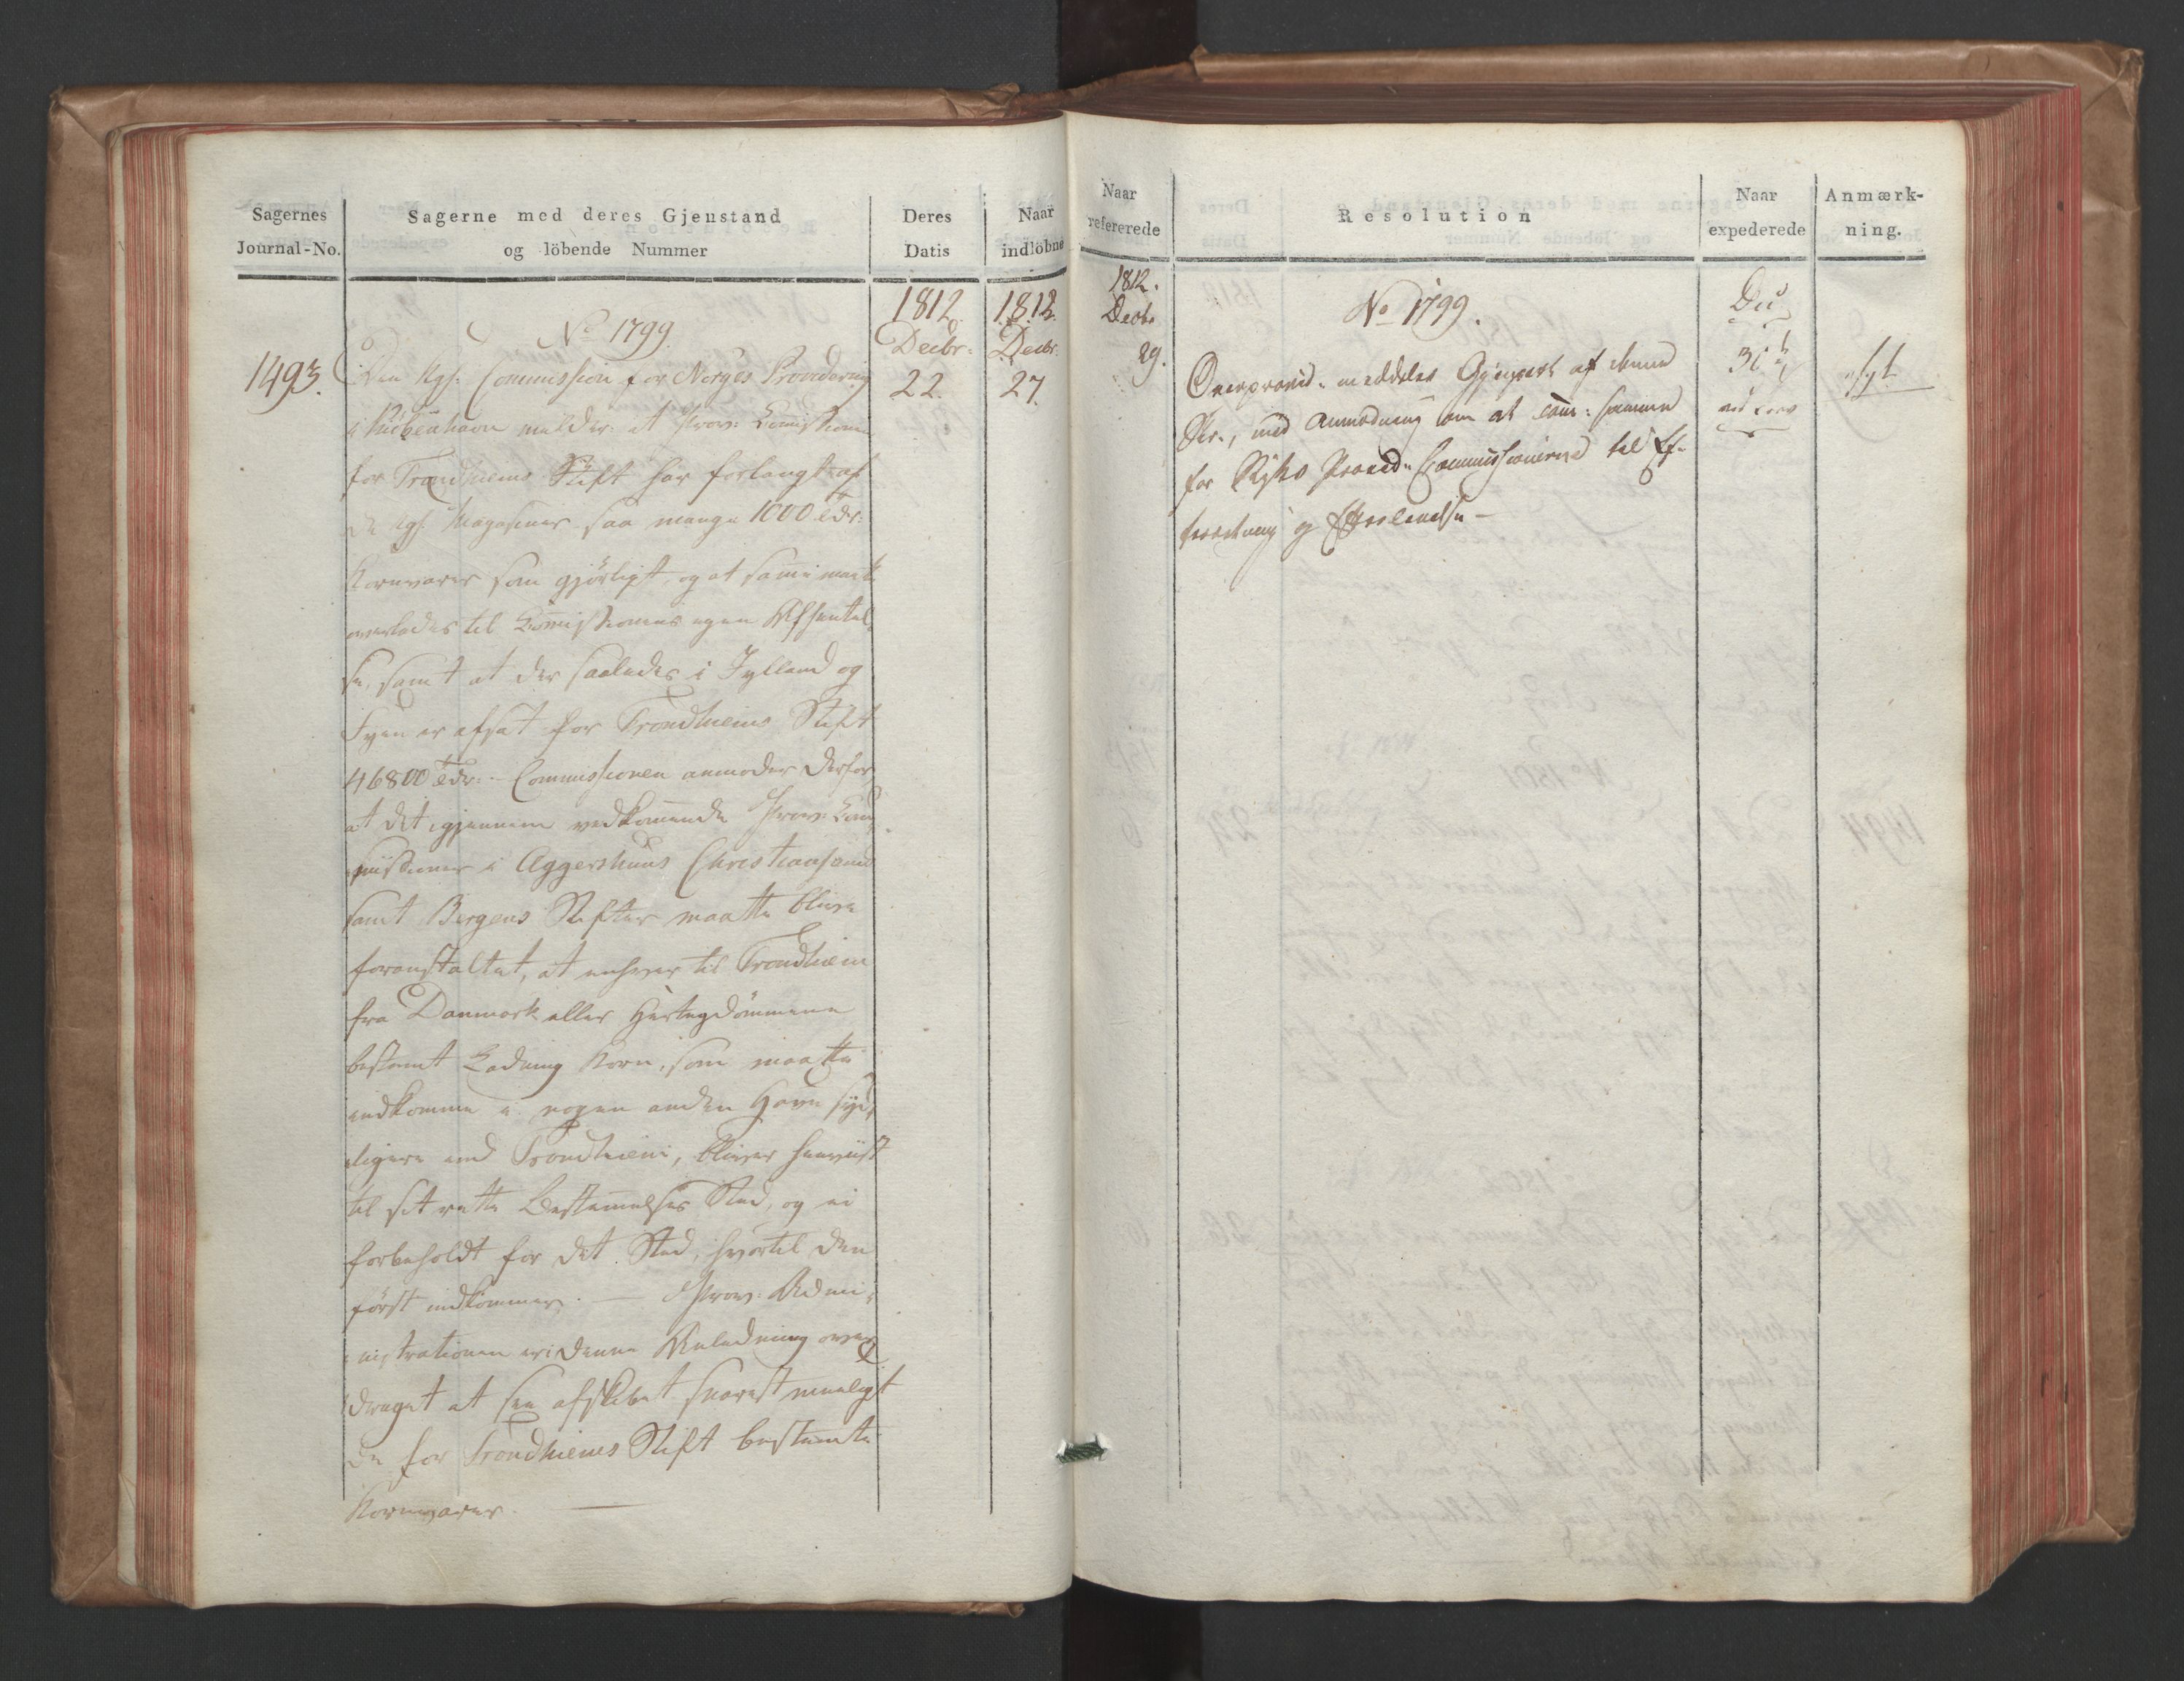 Sagernes
Journal-No.
Sagerne med deres Gjenstand
og löbende Nummer
Deres
Datis
Naar
indlöbne
1812.
Decbr.
22.
1812.
Decbr.
27.
No 1799.
1493.
Den Kgl. Commission for Norges Providering
i Kiöbenhavn melder: at Prov: Comissionen
for Trondhiems Stift har forlangt af
de Kgl. Magasiner saa mange 1000 Tdr:
Kornvarer som gjörligt, og at samme maatte
overlades til Comissionens egen Afhentel-
se, samt at der saaledes i Jylland og
Fyen er afsat for Trondhiems Stift
46800 Tdr: - Commissionen anmoder derfor
at det igjennem vedkommende Prov: Com-
missioner i Aggershuus Christiansands
samt Bergens Stifter maatte blive
foranstaltet, at enhver til Trondhiem
fra Danmark eller Hertugdömmene
bestemt Ladning Korn, som maatte
indkomme i nogen anden Havn syd-
ligere end Trondhiem, bliver henviist
til sit rette Bestemmelses Sted, og ei
forbeholdt for det Sted, hvortil den
först indkommer. — Prov: Admi-
nistrationen er i denne Anledning over-
draget at see afskibet snarest mueligt
de for Trondhiems Stift bestemte
Kornvarer. —
Naar
refererede
Resolution
Naar
expederede
Anmærk-
ning.
1812.
Decbr.
29.
No 1799.
Overprovid. meddeles Gjenpart af denne
Skr., med Anmodning om at com: samme
for Rigets Provid. Commissionerne til Ef-
terretning og Efterlevelse —
30
afgl.